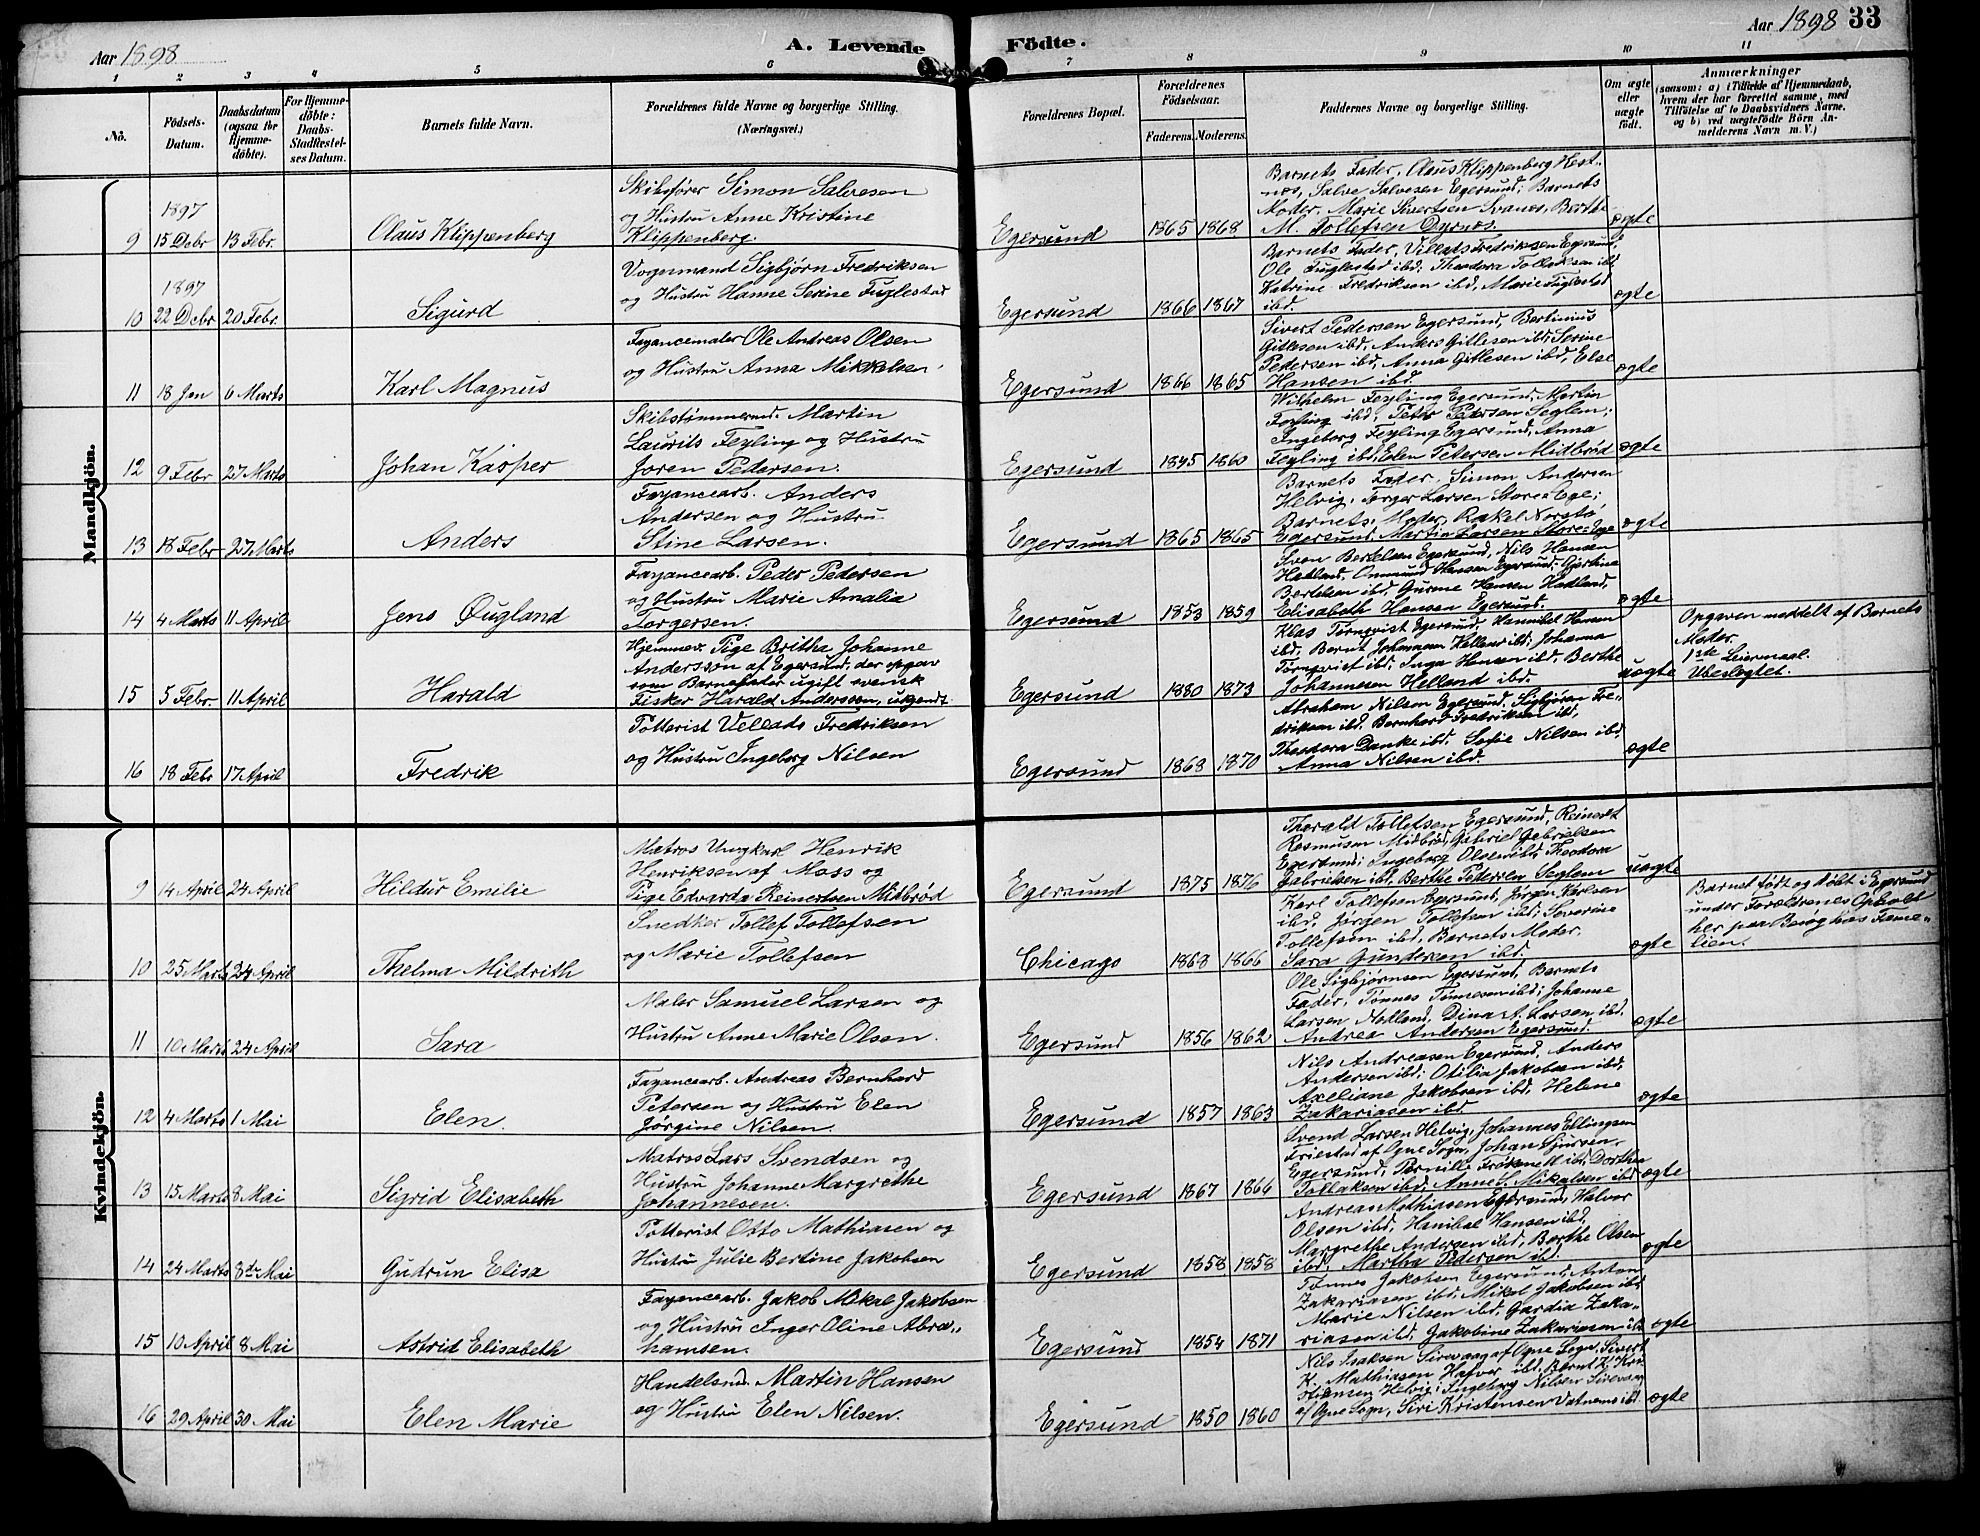 Aar 1898
A. Levende Födte.
Aar 1898 33
1 2 3 4 5 6 7 8 9 10 11
No.
Födsels-Datum.
Daabsdatum (ogsaa for Hjemmedöbte).
For Hjemmedöbte: Daabs-Stadfæstelses Datum.
Barnets fulde Navn.
Forældrenes fulde Navne og borgerlige Stilling.
(Næringsvei.)
Forældrenes Bopæl.
Forældrenes Födselsaar.
Faderens. Moderens.
Faddernes Navne og borgerlige Stilling.
Om ægte eller uægte födt.
Anmærkninger
(saasom: a) i Tilfælde af Hjemmedaab, hvem der har forrettet samme, med Tilföielse af to Daabsvidners Navne, og b) ved uægtefödte Börn Anmelderens Navn m. V.)
Mandkjön.
9 1897 15 Debr 13 Febr. Olaus Klippenberg
Skibsfører Simon Salvesen
og Hustru Anne Kristine
Klippenberg.
Egersund 1865 1868
Barnets Fader, Olaus Klippenberg Hest-
nes, Salve Salvesen Egersund; Barnets
Moder, Marie Sivertsen Svanes, Berthe
M. Tollefsen Dyrnes.
ægte
10 1897 22 Debr 20 Febr. Sigurd
Vognmand Sigbjørn Fredriksen
og Hustru Hanne Serine Fuglestad
Egersund 1866 1867
Barnets Fader, Villads Fredriksen Egersund,
Ole Fuglestad ibd; Theodora Tollaksen ibd
Katrine Fredriksen ibd, Marie Fuglestad
ibd.
ægte
11 18 Jan 6 Marts Karl Magnus
Fayancemaler Ole Andreas Olsen
og Hustru Anna Mikkelsen
Egersund 1866 1865
Sivert Pedersen Egersund, Bertinius
Gitlesen ibd, Anders Gitlesen ibd; Serine
Pedersen ibd, Anna Gitlesen ibd, Else
Hansen ibd.
ægte
12 9 Febr 27 Marts Johan Kasper
Skibstømmermd. Martin
Laurits Feyling og Hustru
Joren Pedersen.
Egersund 1845 1860
Wilhelm Feyling Egersund, Martin
Feyling ibd, Peter Pedersen Seglem;
Ingeborg Feyling Egersund, Anna
Feyling ibd, Elen Petersen Midbrød
ægte
13 18 Febr 27 Marts Anders
Fayancearb. Anders
Andersen og Hustru
Stine Larsen.
Egersund 1865 1865
Barnets Fader, Simon Andersen
Helvig, Torger Larsen Store-Ege;
Barnets Moder, Rakel Norstø
Egersund, Martin Larsen Store-Ege
ægte
14 4 Marts 11 April Jens Øugland
Fayancearb. Peder Pedersen
og Hustru Marie Amalia
Torgersen.
Egersund 1853 1859
Sven Bertelsen Egersund, Nils Hansen
Hadland, Ommund Hansen Egersund; Gjertine
Bertelsen ibd, Gurine Hansen Hadland,
Elisabeth Hansen Egersund.
ægte
15 5 Febr. 11 April Harald
Hjemmev. Pige Britha Johanne
Andersson af Egersund, der opgav
som Barnefader ugift svensk
Fisker Harald Anderssen, ukjendt
Egersund 1880 1873
Klas Tørnqvist Egersund, Hannibal Hansen
ibd, Bernt Johannesen Helland ibd; Johanna
Tørnqvist ibd, Inga Hansen ibd, Berthe
Johannesen Helland ibd.
uægte
Opgaven meddelt af Barnets
Moder.
1ste Leiermaal.
Ubeslægtet.
16 18 Febr 17 April Fredrik
Potterist Vellads Fredriksen
og Hustru Ingeborg Nilsen
Egersund 1868 1870
Abraham Nilsen Egersund, Sigbjørn Fre-
driksen ibd, Bernhard Fredriksen ibd,
Theodora Danke ibd, Sofie Nilsen ibd,
Anna Nilsen ibd.
ægte
Kvindekjön.
9 14 April 24 April Hildur Emelie
Matros Ungkarl Henrik
Henriksen af Moss og
Pige Edvarda Reinertsen Midbrød
Egersund 1875 1876
Thorald Tollefsen Egersund, Reinert
Rasmusen Midbrød, Gabriel Gabrielsen
Egersund; Ingeborg Olsen ibd, Theodora
Gabrielsen ibd, Berthe Pedersen Seglem
uægte
10 25 Marts 24 April Thelma Mildrith
Snedker Tollef Tollefsen
og Marie Tollefsen
Chicago 1868 1866
Karl Tollefsen Egersund, Jørgen Karlsen
ibd, Jørgen Tollefsen ibd; Severine
Tollefsen ibd, Barnets Moder,
Sara Gundersen ibd.
ægte
Barnet født og døbt i Egersund
under Forældrenes Ophold
her paa Besøg hos Fame-
lien.
11 10 Marts 24 April Sara
Maler Samuel Larsen og
Hustru Anne Marie Olsen.
Egersund 1856 1862
Ole Sigbjørnsen Egersund, Barnets
Fader, Tønnes Tønnesen ibd; Johanne
Larsen Hadland, Dina A. Larsen ibd,
Andrea Andersen Egersund.
ægte
12 4 Marts 1 Mai Elen.
Fayancearb. Andreas Bernhard
Petersen og Hustru Elen
Jørgine Nilsen.
Egersund 1857 1863
Nils Andreasen Egersund, Anders
Andersen ibd; Otilia Jakobsen ibd,
Axeliane Jakobsen ibd, Helene
Zakariasen ibd
ægte
13 15 Marts 8 Mai Sigrid Elisabeth
Matros Lars Svendsen og
Hustru Johanne Margrethe
Johannesen.
Egersund 1867 1866
Svend Larsen Helvig, Johannes Ellingsen
Friestad af Ogne Sogn, Johan Sjursen
Egersund, Pernille Frøknett ibd, Dorthea
Tollaksen ibd, Anne S. Mikalsen ibd
ægte
14 24 Marts 8de Mai Gudrun Elisa
Potterist Otto Mathiasen og
Hustru Julie Bertine Jakobsen
Egersund 1858 1858
Andreas Mathiasen Egersund, Halvor
Olsen ibd, Hanibal Hansen ibd,
Margrethe Andersen ibd, Berthe Olsen
ibd, Martha Pedersen ibd
ægte
15 10 April 8 Mai Astrid Elisabeth
Fayancearb. Jakob Mikal Jakobsen
og Hustru Inger Oline Abra-
hamsen.
Egersund 1854 1871
Tønnes Jakobsen Egersund, Anton
Zakariasen ibd, Mikal Jakobsen ibd
Marie Nilsen ibd, Gardia Zaka-
riasen ibd, Jakobine Zakariasen ibd
ægte
16 29 April 30 Mai Elen Marie
Handelsmd. Martin Hansen
og Hustru Elen Nilsen.
Egersund 1850 1860
Nils Isaksen Sirevaag af Ogne Sogn, Sivert
K. Mathiasen Hafver ibd, Bernt K. Kri-
stiansen Helvig; Ingeborg Nilsen Sirevaag
af Ogne Sogn, Siri Kristensen Vatnemo ibd.
ægte